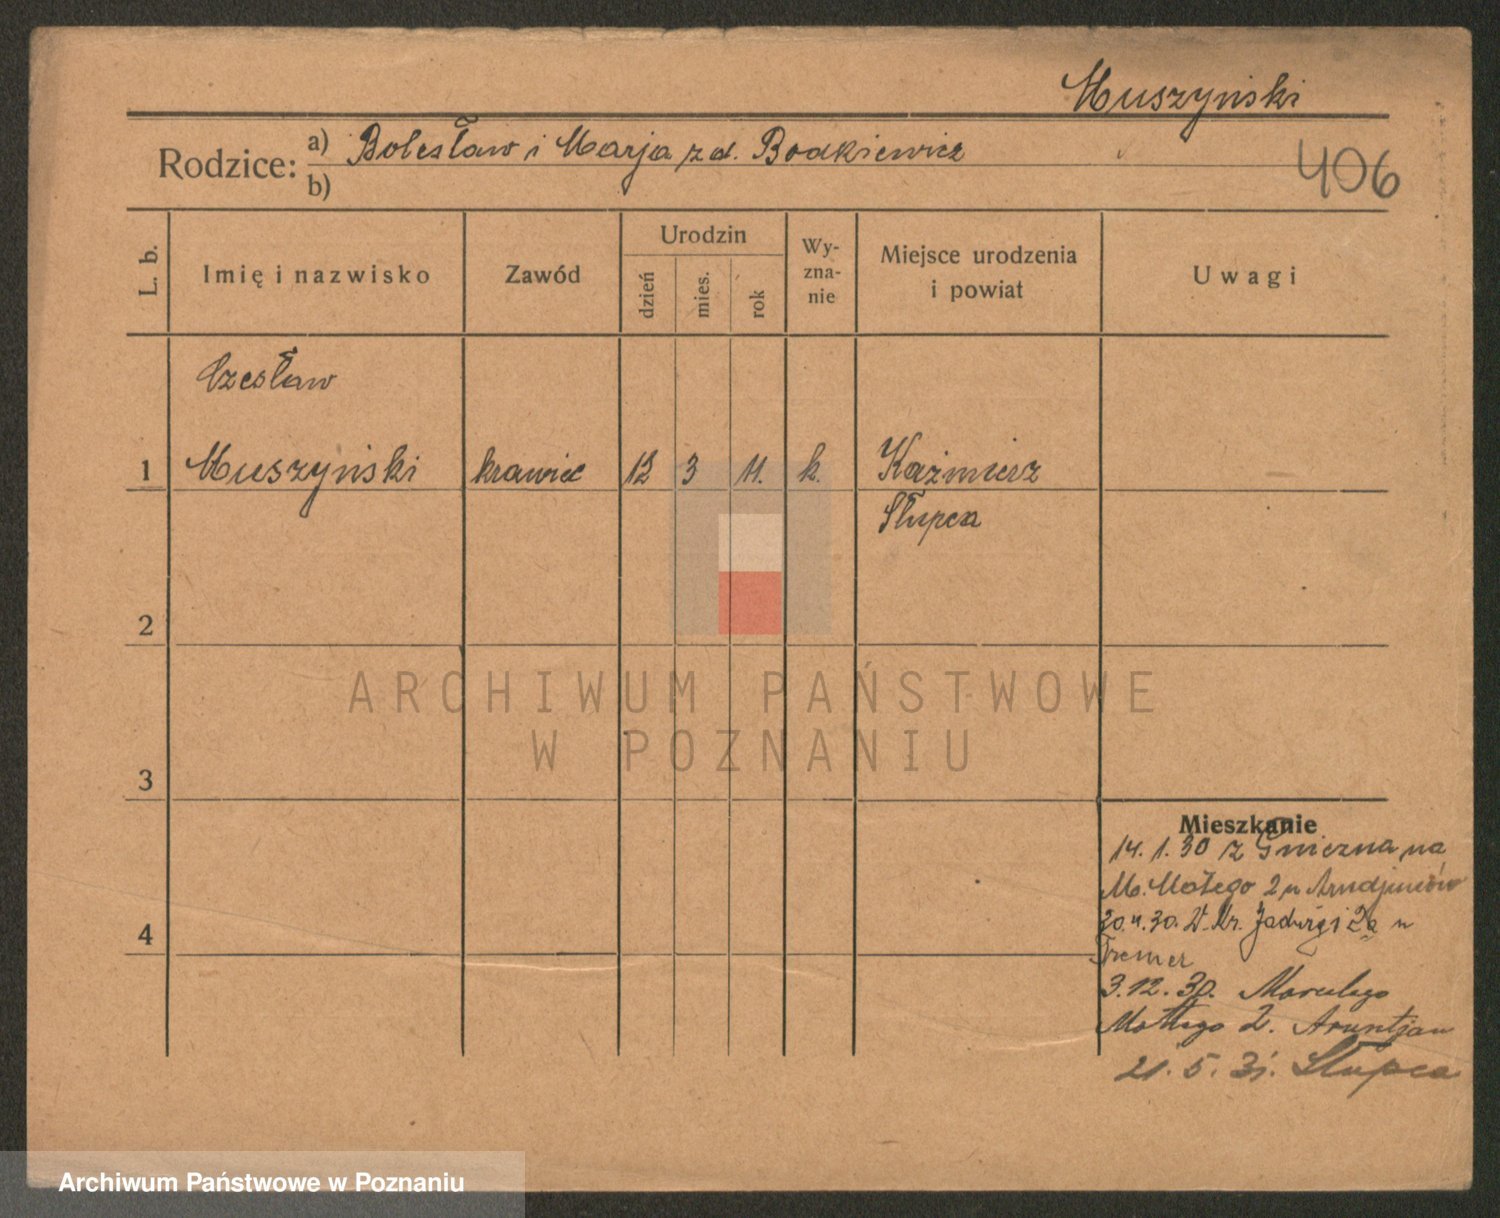 Muszyński
Rodzice: a) Bolesław i Marja z d. Bodkiewicz
b)
406
L. b.
Imię i nazwisko
Zawód
Urodzin
dzień
mies.
rok
Wy-
zna-
nie
Miejsce urodzenia
i powiat
Uwagi
Czesław
1 Muszyński krawiec 12 3 11. k. Kaźmierz
Słupca
2
3
4
Mieszkanie
14. 1. 30 z Gniezna na
M. Małego 2 u
20.4.30. W. Kr. Jadwigi 2a u
Tremer
3.12.30.
2.
21. 5. 31. Słupca
ARCHIWUM PAŃSTWOWE
W POZNANIU
Archiwum Państwowe w Poznaniu